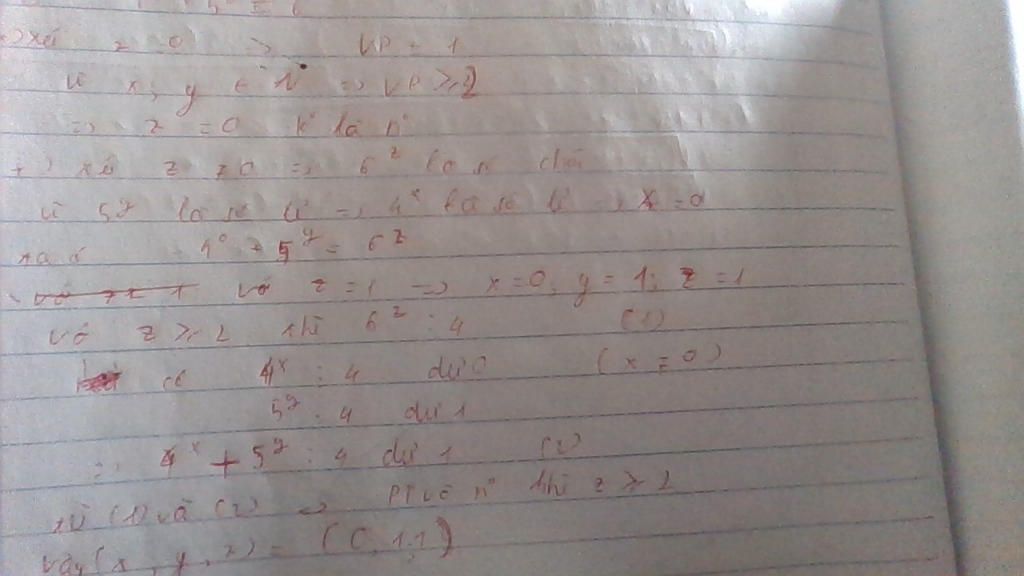 z = 0 => VP = 1
vì x, y ∈ N => VP ≥ 2
=> z = 0 k là n°
+) xét z ≠ 0 => 6^z là số chẵn
vì 5^y là số lẻ => 4^x là số lẻ => x = 0
4^0 + 5^y = 6^z
với z = 1 => x = 0; y = 1; z = 1
với z ≥ 2 thì 6^z : 4 (1)
có 4^x : 4 dư 0 (x ≠ 0)
5^y : 4 dư 1
=> 4^x + 5^y : 4 dư 1 (2)
từ (1) và (2) => PT vô n° khi z ≥ 2
vậy (x, y, z) = (0, 1, 1)